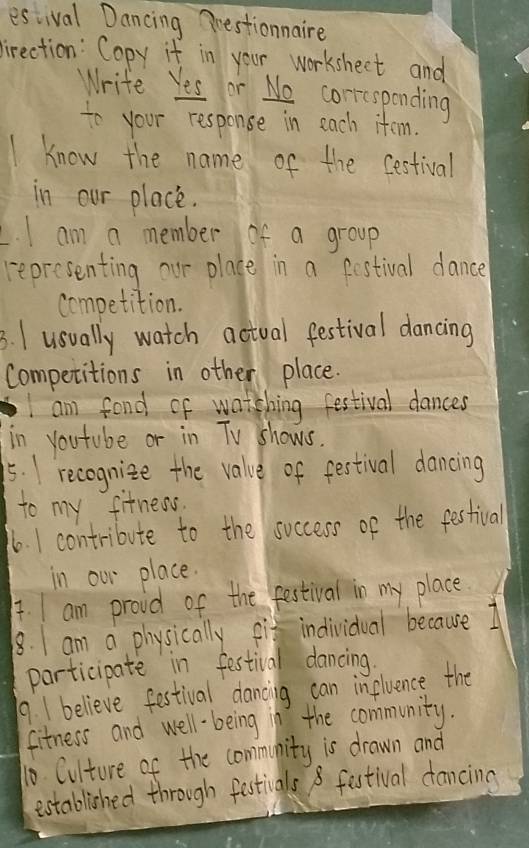 estival Dancing Questionnaire
Direction: Copy it in your worksheet and
Write Yes or No corresponding
to your response in each item.
I know the name of the festival
in our place.
2. I am a member of a group
representing our place in a festival dance
competition.
3. I usually watch actual festival dancing
Competitions in other place.
I am fond of watching festival dances
in youtube or in TV shows.
5. I recognize the value of festival dancing
to my fitness.
6. I contribute to the success of the festival
in our place.
7. I am proud of the festival in my place.
8. I am a physically fit individual because I
participate in festival dancing.
9. I believe festival dancing can influence the
fitness and well-being in the community.
10. Culture of the community is drawn and
established through festivals & festival dancing